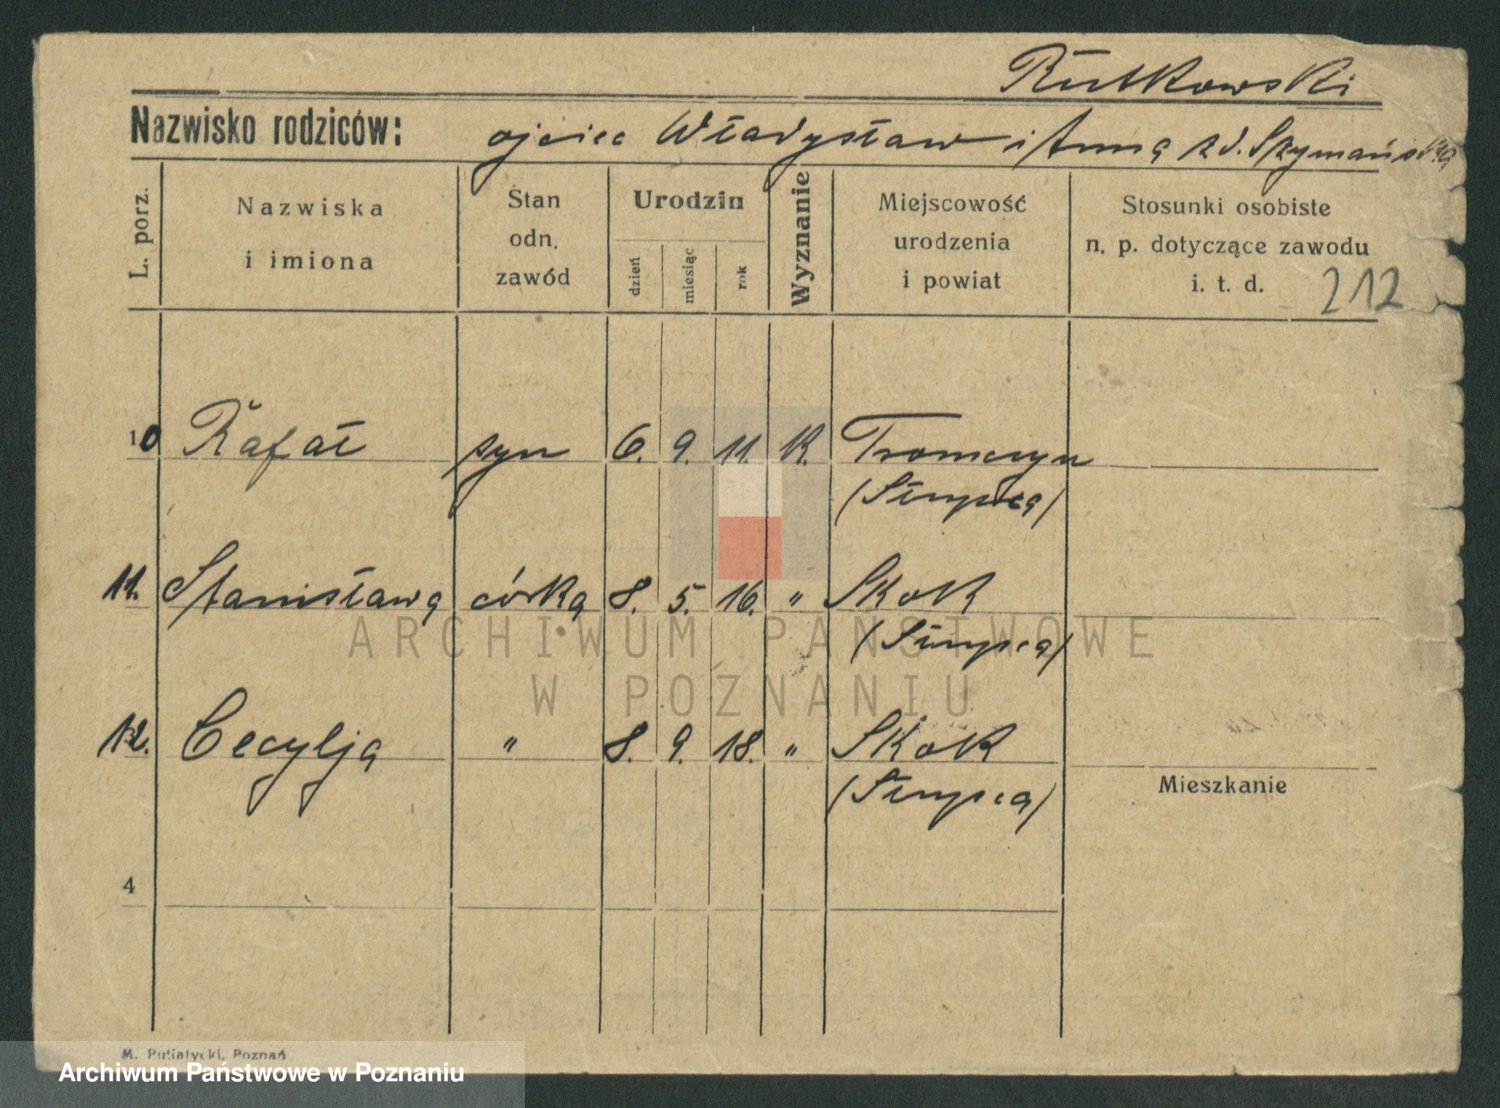 Rutkowski
Nazwisko rodziców: ojciec Władysław i Anna z d. Szymańska
L. porz.
Nazwiska
i imiona
Stan
odn.
zawód
Urodzin
dzień
miesiąc
rok
Wyznanie
Miejscowość
urodzenia
i powiat
Stosunki osobiste
n. p. dotyczące zawodu
i. t. d.
212
10 Rafał syn 6. 9. 11. K.
(Słupca)
11. Stanisława córka 8. 5. 16. " Skok
(Słupca)
ARCHIWUM PAŃSTWOWE
W POZNANIU
12. Cecylja " 8. 9. 18. " Skok
(Słupca)
Mieszkanie
4
M. Putiatycki, Poznań
Archiwum Państwowe w Poznaniu